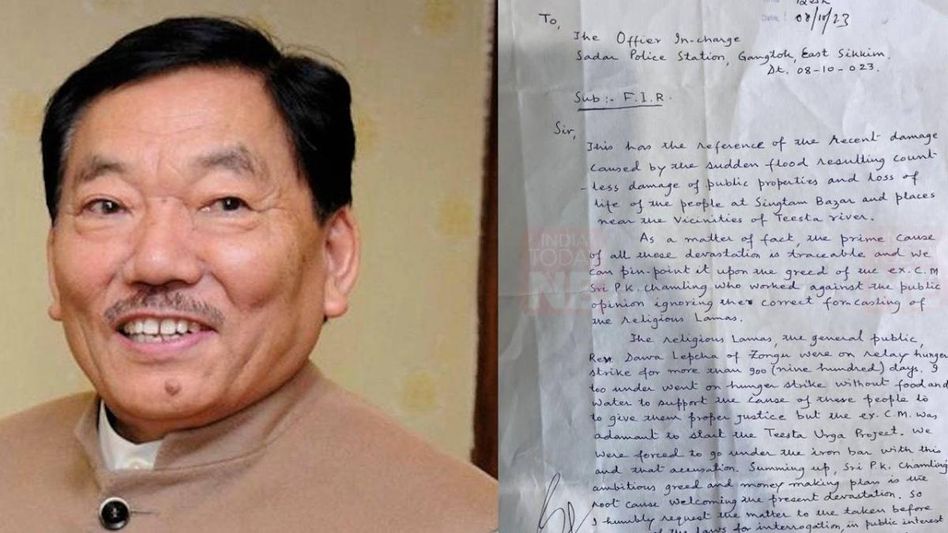 08/10/23
To,
The Offier In-charge
Sadar Police Station, Gangtok, East Sikkim.
Dt. 08-10-023.
Sub:- F.I.R.
Sir,
This has the reference of the recent damage
caused by the sudden flood resulting count
-less damage of public properties and loss of
life of the people at Singtam Bazar and places
near the Vicinities of Teesta river.
As a matter of fact, the prime cause
of all these devastation is traceable and we
can pin-point it upon the greed of the ex. C.M
Sri P.K. Chamling who worked against the public
opinion ignoring the correct forcasting of
the religious Lamas.
The religious Lamas, the general public,
Rev. Dawa Lepcha of Zongu were on relay hunger
strike for more than 900 (nine hundred) days. I
too under went on hunger strike without food and
water to support the cause of these people to
to give them proper justice but the ex. C.M. was
adamant to start the Teesta Urga Project. We
were forced to go under the iron bar with this
and that accusation. Summing up, Sri P.K. Chamling
ambitious greed and money making plan is the
root cause welcoming the present devastation. So
I humbly request the matter to the taken before
of the laws for interrogation, in public interest
INDIA
TODAY
NE